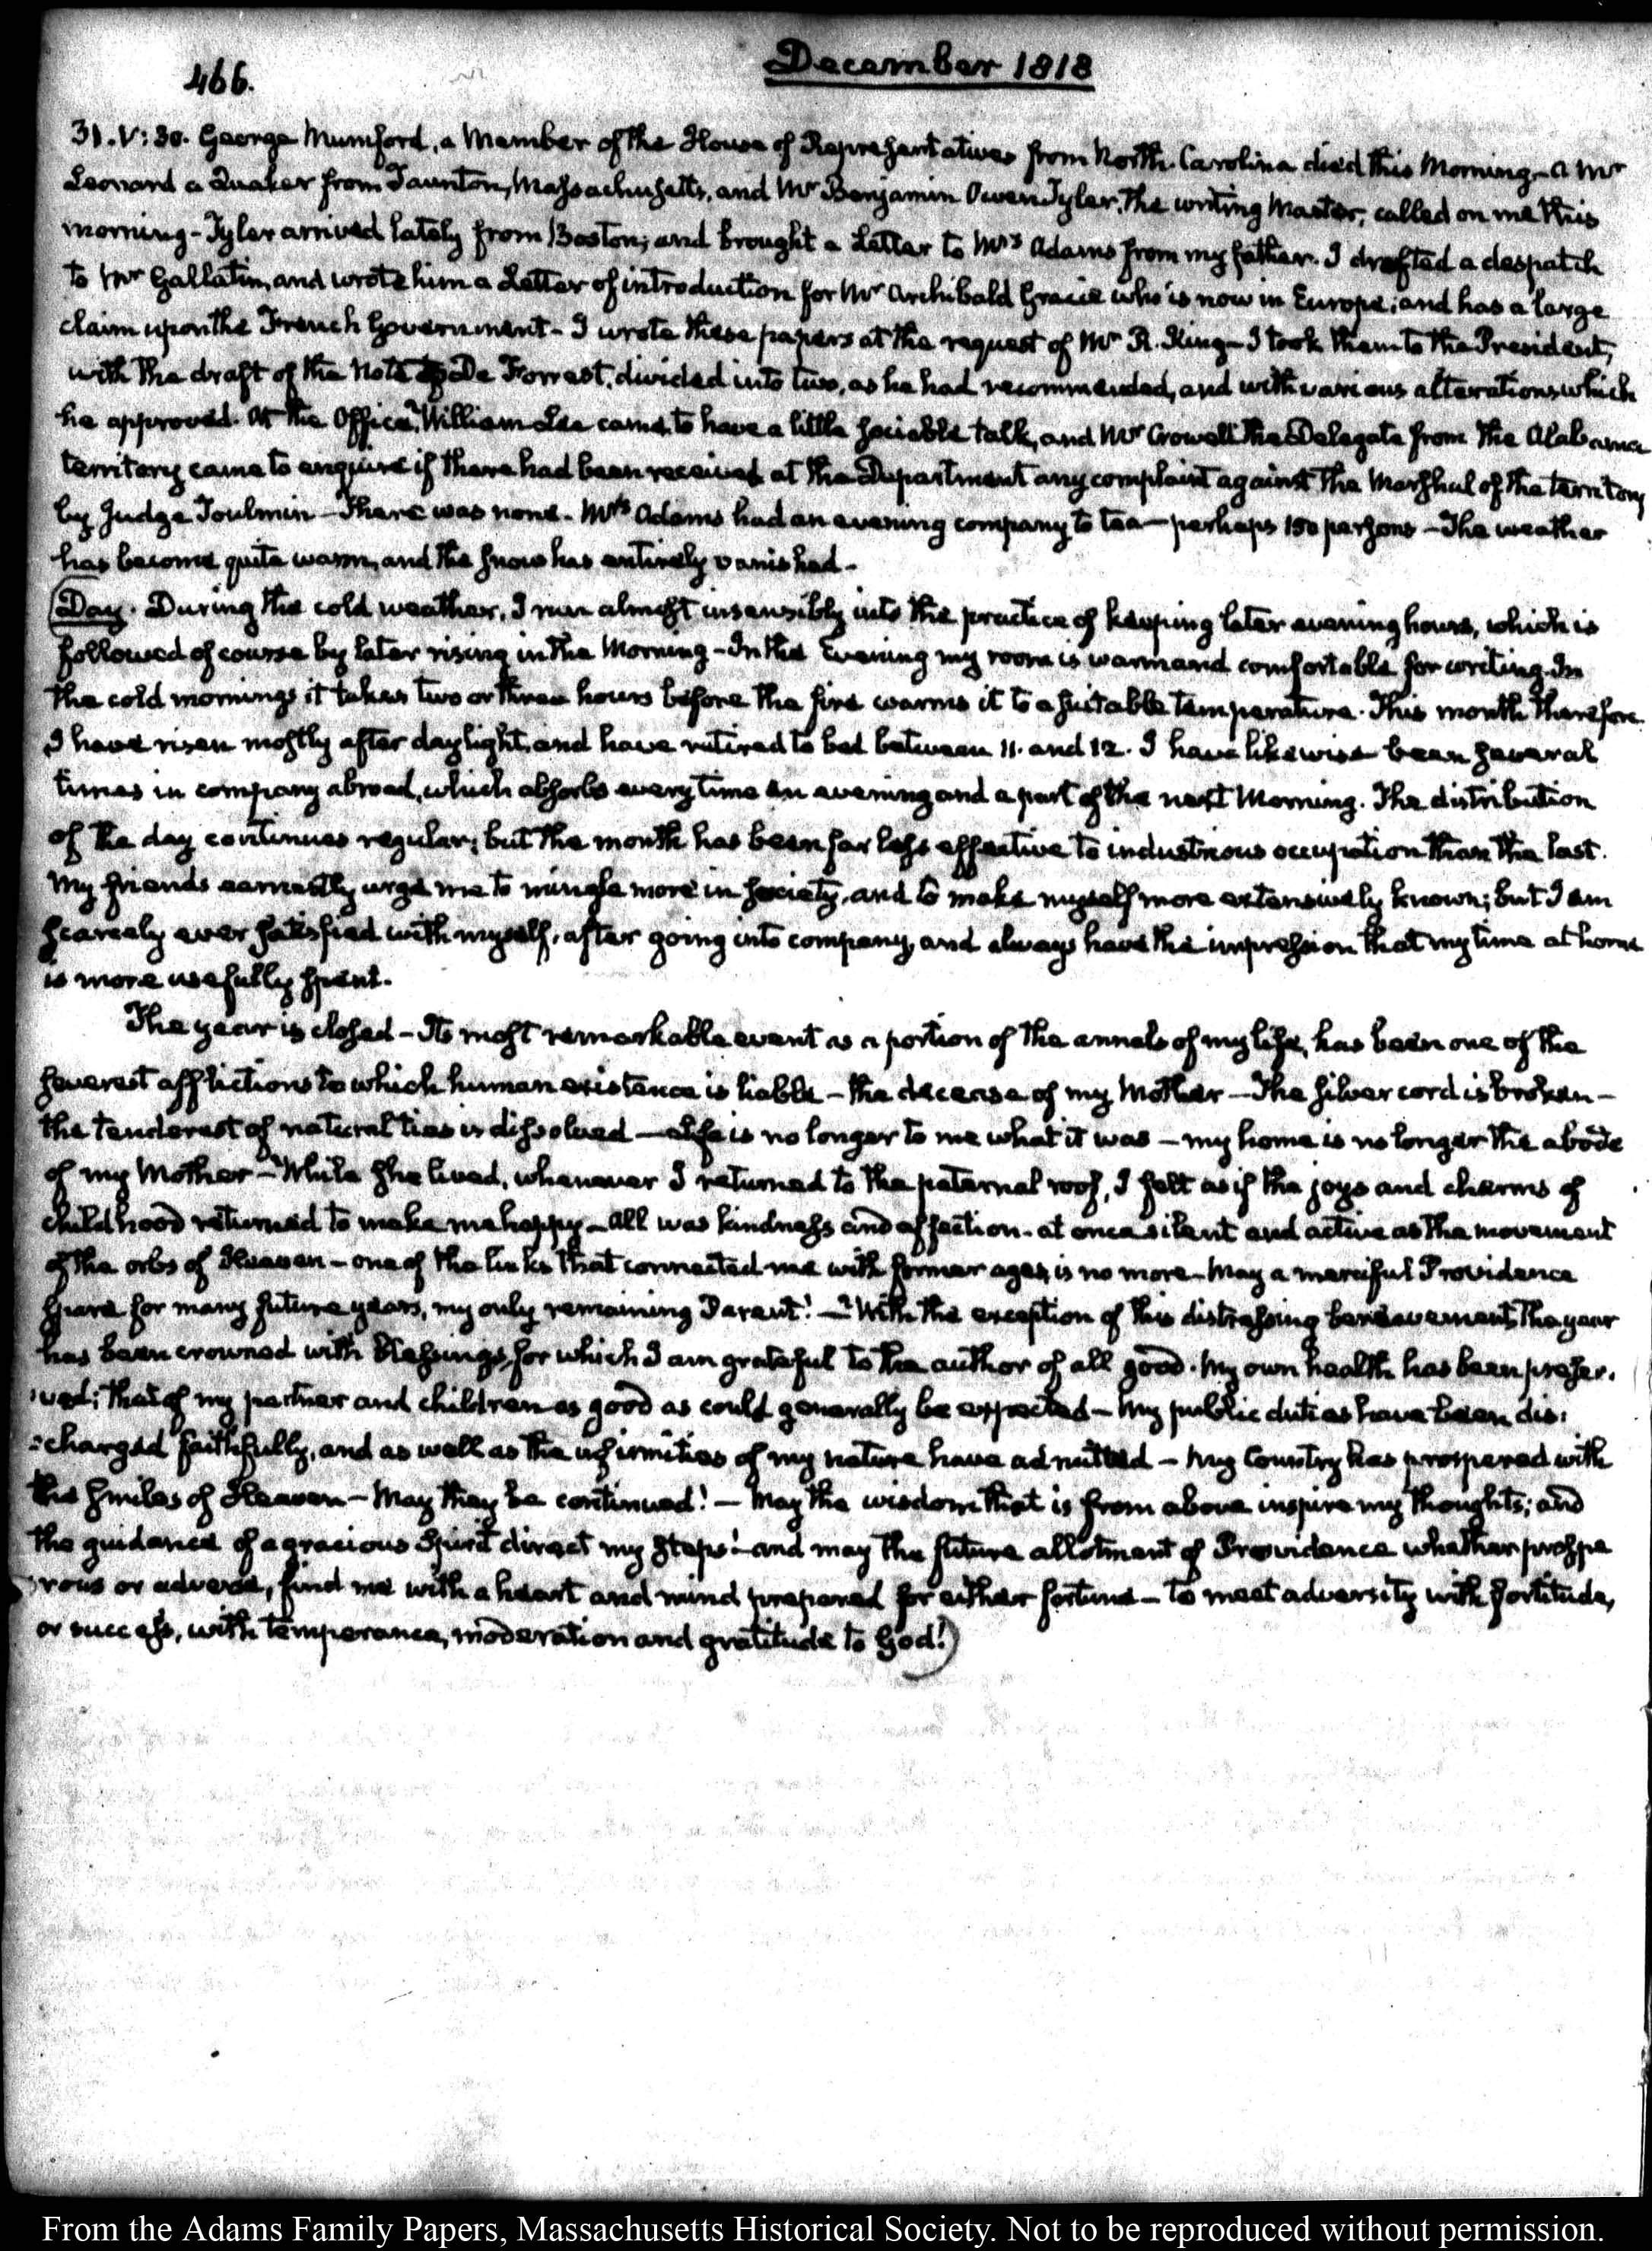 466.
December 1818
31. V:30. George Mumford, a Member of the House of Representatives from North-Carolina died this Morning - A Mr
Leonard a Quaker from Taunton, Massachusetts, and Mr Benjamin Owen Tyler, the writing Master, called on me this
morning - Tyler arrived lately from Boston; and brought a Letter to Mrs Adams from my father. I drafted a despatch
to Mr Gallatin, and wrote him a Letter of introduction for Mr Archibald Gracie who is now in Europe; and has a large
claim upon the French Government - I wrote these papers at the request of Mr R. King - I took them to the President,
with the draft of the Note to De Forrest, divided into two, as he had recommended, and with various alterations which
he approved. At the Office, William Lee came, to have a little sociable talk, and Mr Crowell the Delegate from the Alabama
territory came to enquire if there had been received at the Department any complaint against the Marshal of the territory
by Judge Toulmin - There was none. Mrs Adams had an evening company to tea - perhaps 150 persons - The weather
has become quite warm, and the snow has entirely vanished -
Day. During the cold weather, I run almost insensibly into the practice of keeping later evening hours, which is
followed of course by later rising in the Morning - In the Evening my room is warm and comfortable for writing. In
the cold mornings it takes two or three hours before the fire warms it to a suitable temperature. This month therefore
I have risen mostly after daylight, and have retired to bed between 11. and 12. I have likewise been several
times in company abroad, which absorbs every time an evening and a part of the next Morning. The distribution
of the day continues regular; but the month has been far less effective to industrious occupation than the last.
My friends earnestly urge me to mingle more in society, and to make myself more extensively known; but I am
scarcely ever satisfied with myself, after going into company, and always have the impression that my time at home
is more usefully spent.
The year is closed - Its most remarkable event as a portion of the annals of my life, has been one of the
severest afflictions to which human existence is liable - the decease of my Mother - The silver cord is broken -
the tenderest of natural ties is dissolved - Life is no longer to me what it was - my home is no longer the abode
of my Mother - While she lived, whenever I returned to the paternal roof, I felt as if the joys and charms of
childhood returned to make me happy - All was kindness and affection - at once silent and active as the movement
of the orbs of Heaven - one of the links that connected me with former ages, is no more - May a merciful Providence
spare for many future years, my only remaining Parent! - With the exception of this distressing bereavement, the year
has been crowned with blessings, for which I am grateful to the author of all good. My own health has been preser-
:ved; that of my partner and children as good as could generally be expected - My public duties have been dis:
:charged faithfully, and as well as the infirmities of my nature have admitted - My Country has prospered with
the smiles of Heaven - May they be continued! - May the wisdom that is from above inspire my thoughts; and
the guidance of a gracious Spirit direct my steps! - and may the future allotment of Providence whether prospe
:rous or adverse, find me with a heart and mind prepared for either fortune - to meet adversity with fortitude,
or success, with temperance, moderation and gratitude to God!)
From the Adams Family Papers, Massachusetts Historical Society. Not to be reproduced without permission.